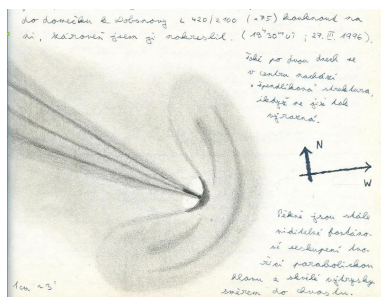 do domečku k Dobsonovi 420/2100 (×75) kouknout na
ni, zároveň jsem ji nakreslil. (19ʰ30ᵐ UT ; 27. III. 1996).
Také po dvou dnech se
v centru nachází
struktura,
i když ne již tak
výrazná.
N
W
Pěkné jsou stále
viditelné
seskupení
parabolickou
hlavu a skvělé výtrysky
směrem do chvostu.
1cm ~ 3'